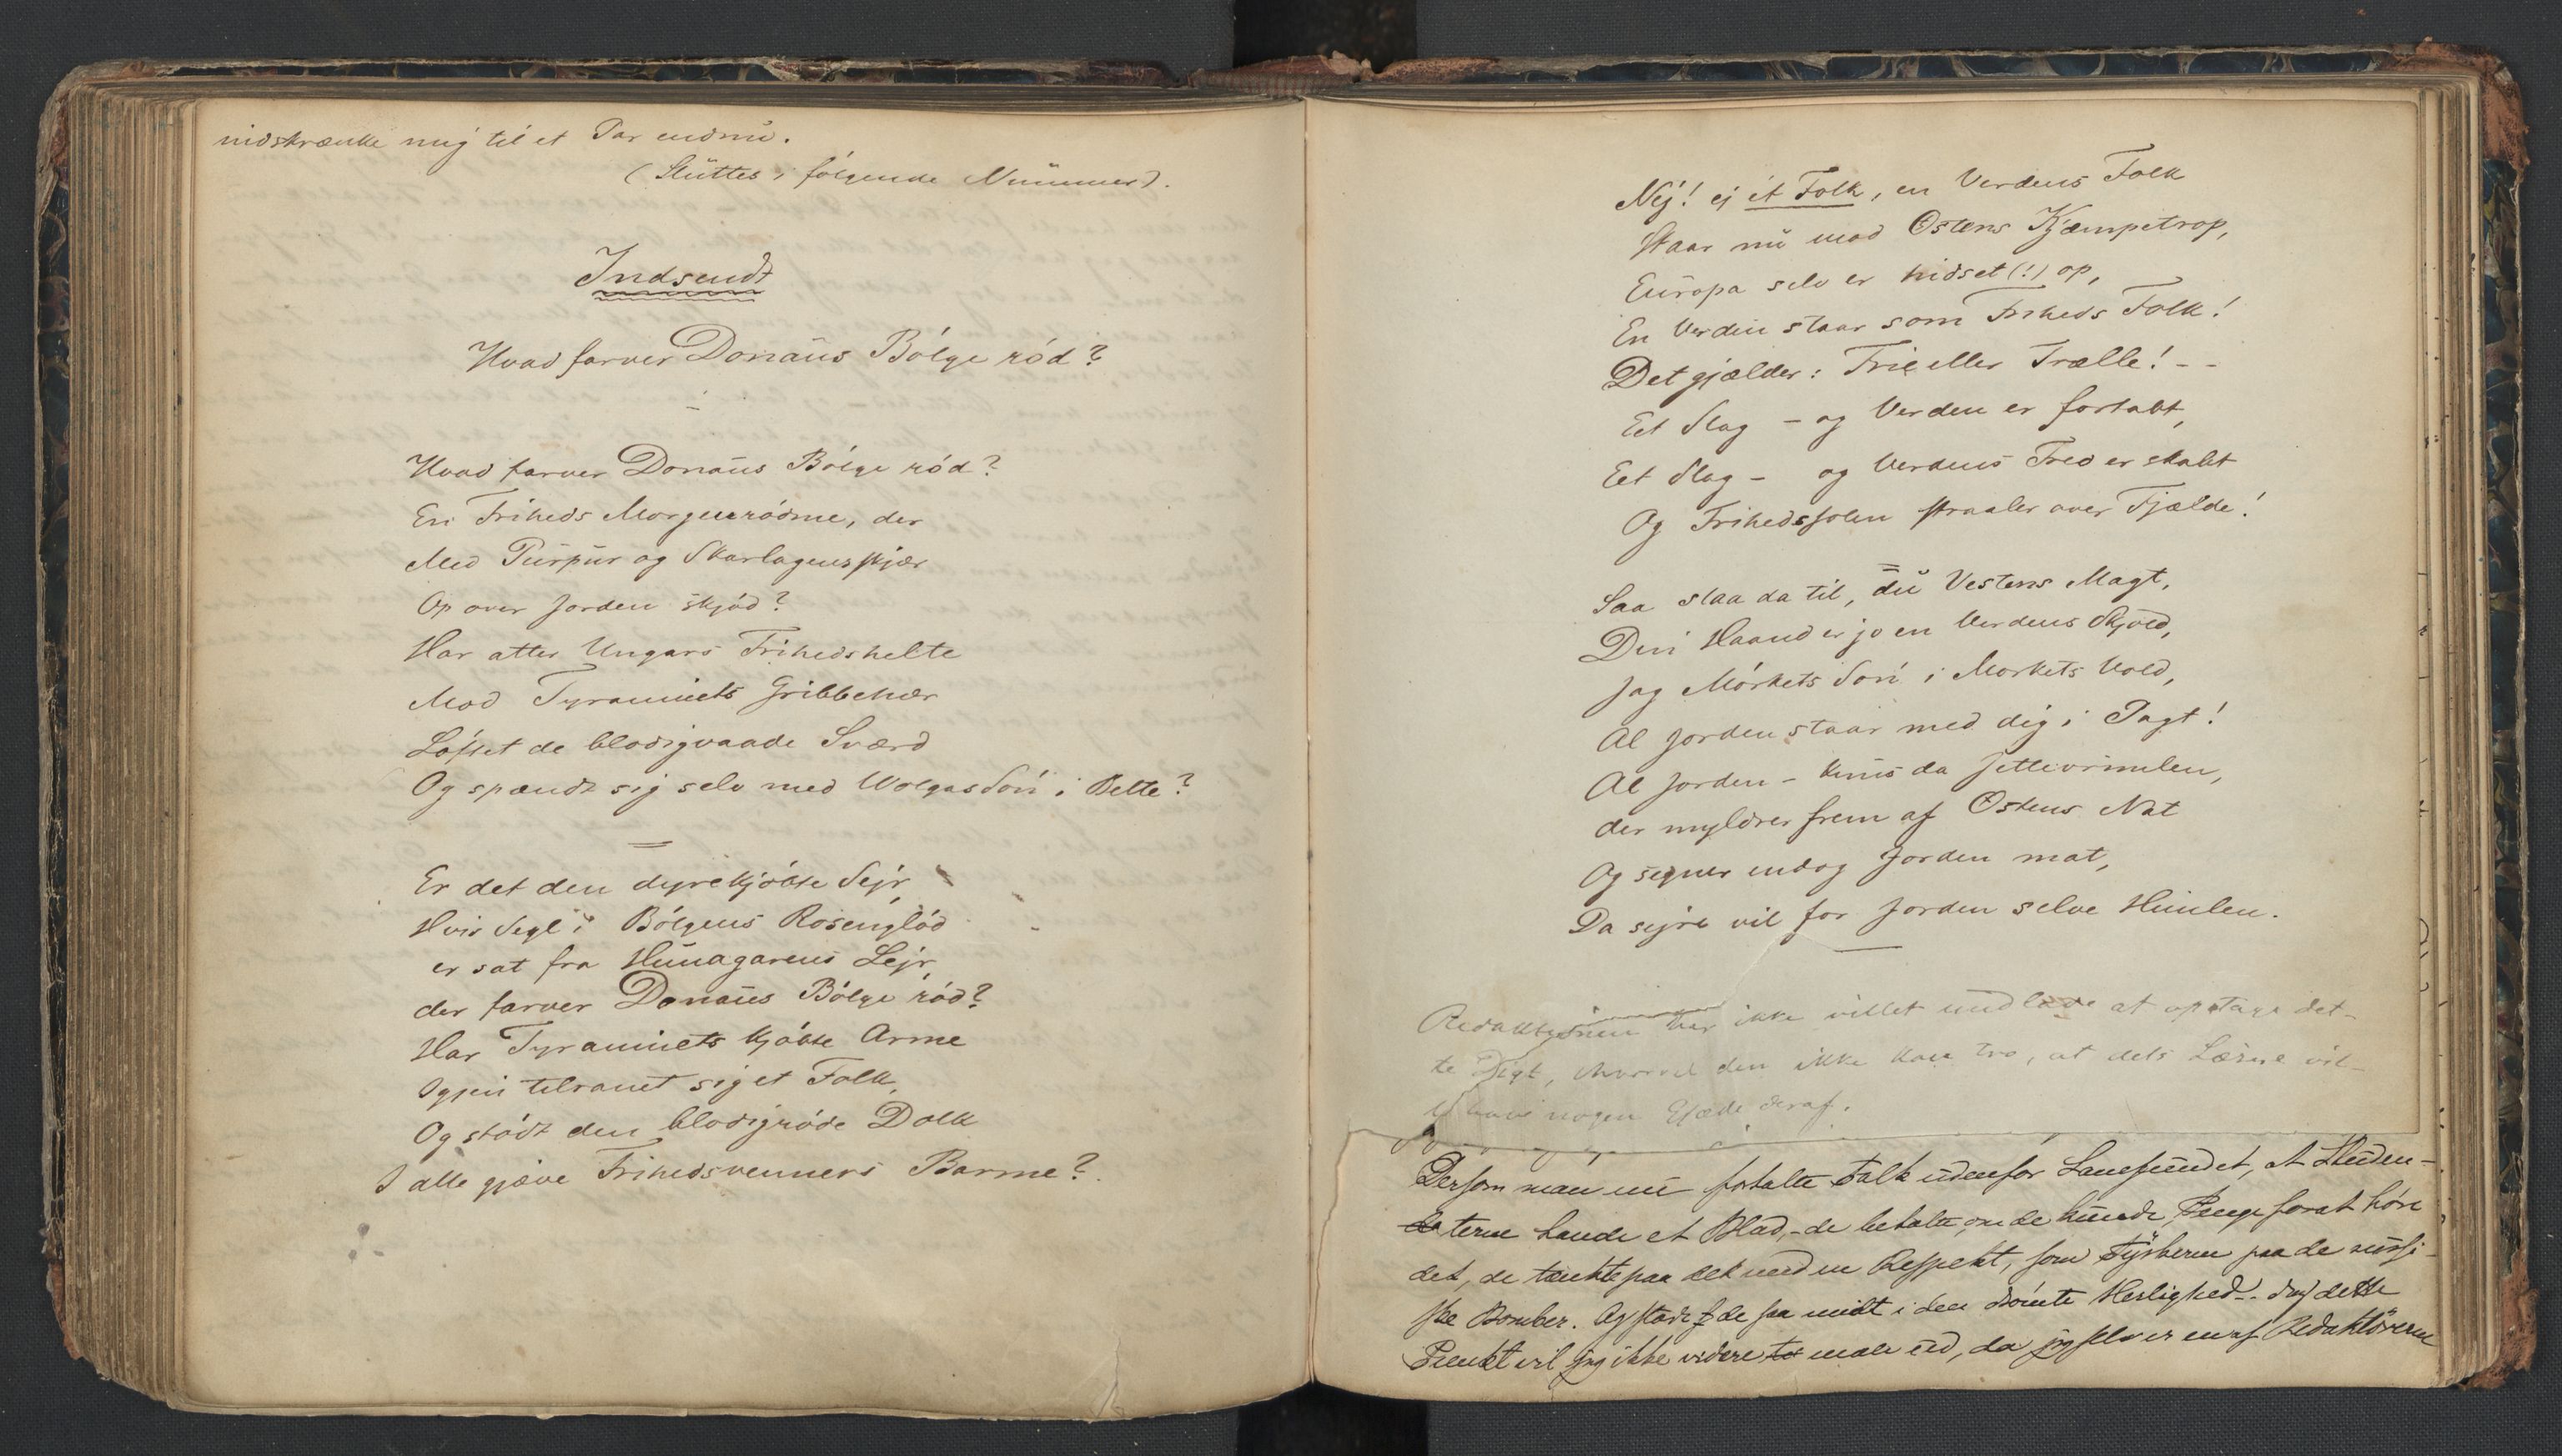 indskrænke mig til et Par endnu.
(Sluttes i følgende Nummer).
Indsendt
Hvad farver Donaus Bölge röd?
Hvad farver Donaus Bölge röd?
En Friheds Morgenrödme, der
Med Purpur og Skarlagensskjær
Op over Jorden skjöd?
Har atter Ungars Frihedshelte
Mod Tyranniets Gribbehær
Löftet de blodigvaade Sværd
Og spændt sig selv med Wolgas Sön i Belte?
Er det den dyrekjöbte Sejr,
Hvis Segl i Bölgens Rosenglöd
er sat fra Hunagarens Lejr,
der farver Donaus Bölge röd?
Har Tyranniets kjöbte Arme
Igjen tilranet sig et Folk,
Og stödt den blodigröde Dolk
I alle gjæve Frihedsvenners Barme?
Nej! ej ét Folk, en Verdens Folk
Staar nu mod Ostens Kjæmpetrop,
Europa selv er hidset (!) op,
En Verden staar som Friheds Tolk!
Det gjælder: Frie eller Trælle! - -
Eet Slag - og Verden er fortabt,
Eet Slag - og Verdens Fred er skabt
Og Frihedssolen straaler over Fjælde!
Saa slaa da til, du Vestens Magt,
Din Haand er jo en Verdens Skjold,
Jag Mörkets Sön i Morkets Vold,
Al Jorden staar med dig i Pagt!
Al Jorden - knus da Jettevrimlen,
der myldrer frem af Ostens Nat
Og segner endog Jorden mat,
Da sejre vil for Jorden selve Himlen.
Redaktionen har ikke villet undlade at optage det-
te Digt, hvorvel den ikke kan tro, at dets Læsere vil-
le have nogen Glæde deraf.
Dersom man nu fortalte Folk udenfor Samfundet, at Studen-
terne havde et Blad, - de betalte, om de kunde, Penge forat höre
det, de tænkte paa det med en Respekt, som Tyskerne paa de russi-
ske Bomber. Og stode de saa midt i den drömte Herlighed -. Dog dette
Punkt vil jeg ikke videre male ud, da jeg selv er en af Redaktörerne